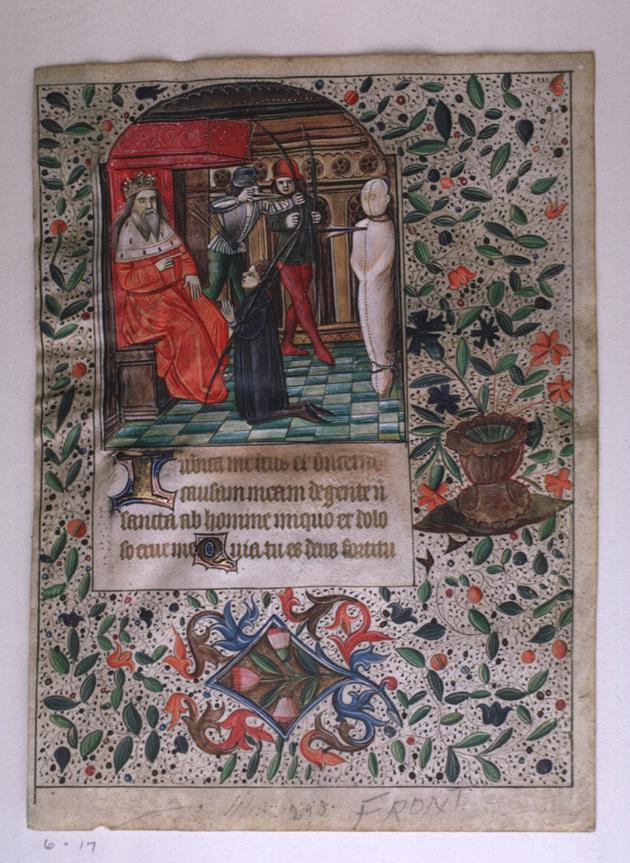 Iudica me deus et discerne
causam meam de gente n
sancta ab homine iniquo et dolo
so erue me Quia tu es deus fortitu
293
FRONT
6-17